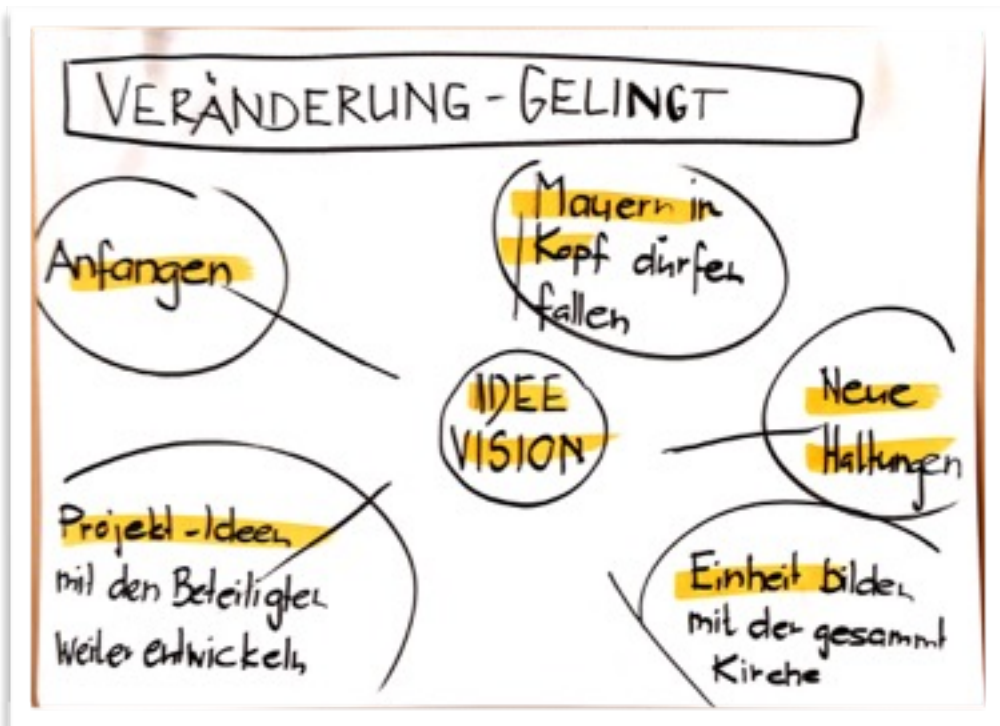 VERÄNDERUNG - GELINGT
Anfangen
Mauern in
Kopf dürfen
fallen
IDEE
VISION
Neue
Haltungen
Projekt-Ideen
mit den Beteiligten
weiter entwickeln
Einheit bilden
mit der gesammt
Kirche